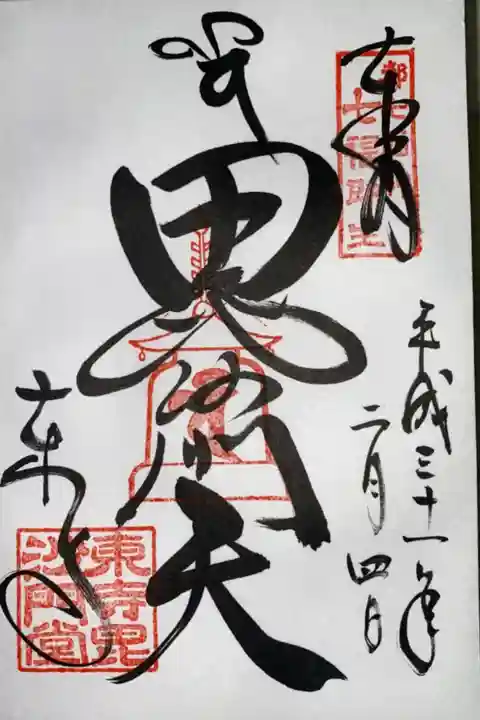 奉拝
都七福神
平成三十一年
二月四日
毘沙門天
東寺
東寺毘
沙門堂